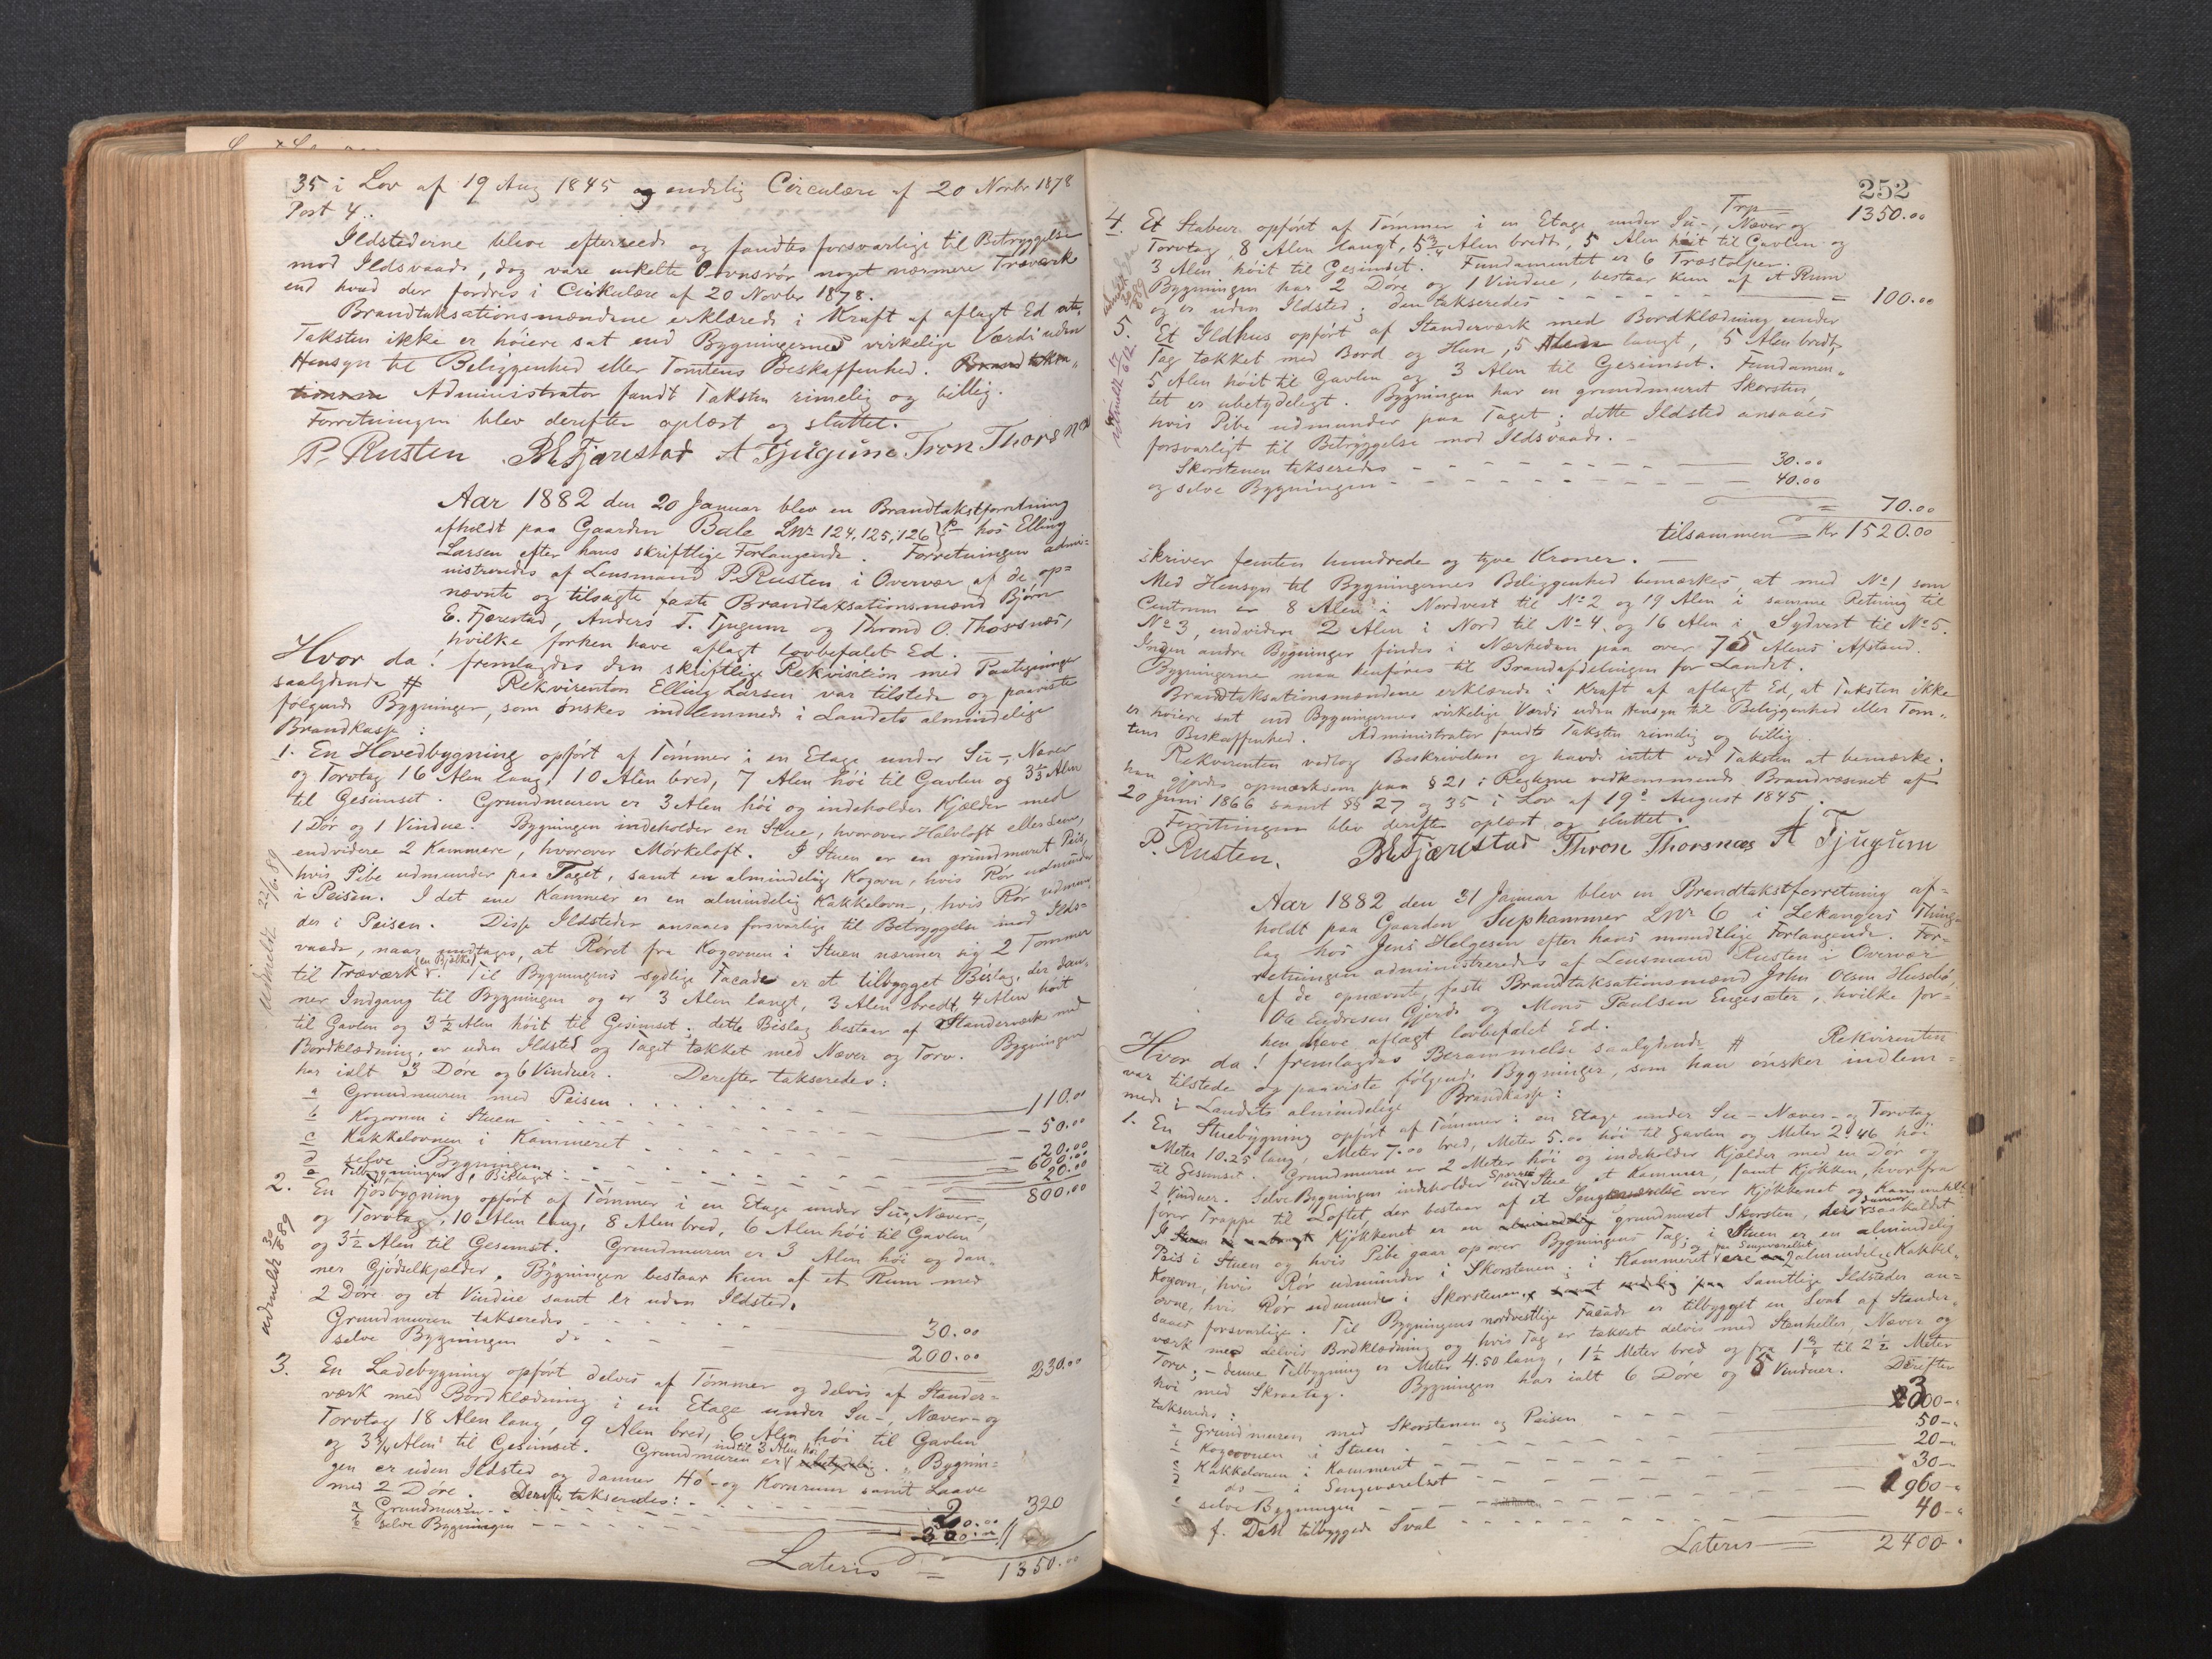 35 i Lov af 19 Aug 1845 og endelig Circulære af 20 Novbr 1878
Post 4.
Ildstederne bleve efterseede og fandtes forsvarlige til Betryggelse
mod Ildsvaade, dog vare enkelte Ovnsrør noget nærmere Træværk
end hvad der fordres i Cirkulære af 20 Novbr 1878.
Brandtaksationsmændene erklærede i Kraft af aflagt Ed at
Taksten ikke er høiere sat end Bygningernes virkelige Værdi uden
Hensyn til Beliggenhed eller Tomtens Beskaffenhed.
Administrator fandt Taksten rimelig og billig.
Forretningen blev derefter oplæst og sluttet.
P. Rusten BEFjærestad A Tjugum Tron Thorsnes
Aar 1882 den 20 Januar blev en Brandtakstforretning
afholdt paa Gaarden Bale Lnr 124, 125, 126 hos Elling
Larsen efter hans skriftlige Forlangende. Forretningen admi-
nistreredes af Lensmand P. Rusten i Overvær af de op-
nævnte og tilsagte faste Brandtaksationsmænd Bjørn
E. Fjærestad, Anders T. Tjugum og Thrond O. Thorsnæs,
hvilke forhen have aflagt lovbefalet Ed.
Hvor da! fremlagdes den skriftlige Rekvisition med Paategninger
saalydende # Rekvirenten Elling Larsen var tilstede og paaviste
følgende Bygninger, som ønskes indlemmede i Landets almindelige
Brandkasse:
1. En Hovedbygning opført af Tømmer i en Etage under Su-, Næver
og Torvtag 16 Alen lang, 10 Alen bred, 7 Alen høi til Gavlen og 3½ Alen
til Gesimset. Grundmuren er 3 Alen høi og indeholder Kjælder med
1 Dør og 1 Vindue. Bygningen indeholder en Stue, hvorover Halvloft eller Lem,
endvidere 2 Kammere, hvorover Mørkeloft. I Stuen er en grundmuret Peis,
hvis Pibe udmunder paa Taget, samt en almindelig Kogovn, hvis Rør udmunder
i Peisen. I det ene Kammer er en almindelig Kakkelovn, hvis Rør udmun-
der i Peisen. Disse Ildsteder ansaaes forsvarlige til Betryggelse mod Ilds-
vaade, naar undtages, at Røret fra Kogovnen i Stuen nærmer sig 2 Tommer
til Træværk (en Bjælke). Til Bygningens sydlige Facade er et tilbygget Bislag, der dan-
ner Indgang til Bygningen og er 3 Alen langt, 3 Alen bredt, 4 Alen høit
til Gavlen og 3½ Alen høit til Gesimset; dette Bislag bestaar af Standerværk med
Bordklædning, er uden Ildsted og Taget tækket med Næver og Torv. Bygningen
har ialt 3 Døre og 6 Vinduer. Derefter takseredes:
a Grundmuren med Peisen 110.00
b Kogovnen i Stuen 50.00
c Kakkelovnen i Kammeret 20.00
d selve Bygningen 600.00
e Tilbygningen, Bislaget 20.00
800.00
udmeldt 22/6.89
2. En Fjøsbygning opført af Tømmer i en Etage under Su-, Næver-,
og Torvtag, 10 Alen lang, 8 Alen bred, 6 Alen høi til Gavlen
og 3½ Alen til Gesimset. Grundmuren er 3 Alen høi og dan-
ner Gjødselkjælder. Bygningen bestaar kun af et Rum med
2 Døre og et Vindue samt er uden Ildsted.
Grundmuren takseredes 30.00
selve Bygningen do 200.00
230.00
udmeldt 30/8 89
3. En Ladebygning opført delvis af Tømmer og delvis af Stander-
værk med Bordklædning i en Etage under Su-, Næver- og
Torvtag 18 Alen lang, 9 Alen bred, 6 Alen høi til Gavlen
og 3¾ Alen til Gesimset. Grundmuren er indtil 3 Alen høi. Bygnin-
gen er uden Ildsted og danner Hø- og Kornrum samt Laave
med 2 Døre. Derefter takseredes:
a Grundmuren 20.00
b selve Bygningen 300.00
320
Lateris = 1350.00
252
Trp 1350.00
4. Et Stabur opført af Tømmer i en Etage under Su-, Næver og
Torvtag, 8 Alen langt, 5¾ Alen bredt, 5 Alen høit til Gavlen og
3 Alen høit til Gesimset. Fundamentet er 6 Træstolper.
Bygningen har 2 Døre og 1 Vindue, bestaar kun af et Rum
og er uden Ildsted; den takseredes = 100.00
5. Et Ildhus opført af Standerværk med Bordklædning under
Tag tækket med Bord og Hun, 5 Alen langt, 5 Alen bredt,
5 Alen høit til Gavlen og 3 Alen til Gesimset. Fundamen-
tet er ubetydeligt. Bygningen har en grundmuret Skorsten,
hvis Pibe udmunder paa Taget; dette Ildsted ansaaes
forsvarligt til Betryggelse mod Ildsvaade.
Skorstenen takseredes 30.00
og selve Bygningen 40.00
= 70.00
tilsammen = Kr 1520.00
skriver femten hundrede og tyve Kroner.
Med Hensyn til Bygningernes Beliggenhed bemærkes, at med No 1 som
Centrum er 8 Alen i Nordvest til No 2 og 19 Alen i samme Retning til
No 3, endvidere 2 Alen i Nord til No 4, og 16 Alen i Sydvest til No 5.
Ingen andre Bygninger findes i Nærheden paa over 75 Alens Afstand.
Bygningerne maa henføres til Brandafdelingen for Landet.
Brandtaksationsmændene erklærede i Kraft af aflagt Ed, at Taksten ikke
er høiere sat end Bygningernes virkelige Værdi uden Hensyn til Beliggenhed eller Tom-
tens Beskaffenhed. Administrator fandt Taksten rimelig og billig.
Rekvirenten vedtog Beskrivelsen og havde intet ved Taksten at bemærke;
han gjordes opmærksom paa § 21 i Reglerne vedkommende Brandvæsenet af
20 Juni 1866 samt §§ 27 og 35 i Lov af 19de August 1845.
Forretningen blev derefter oplæst og sluttet.
P. Rusten. BEFjærestad Thron Thorsnæs A Tjugum
Aar 1882 den 31 Januar blev en Brandtakstforretning af-
holdt paa Gaarden Suphammer Lnr 6 i Lekangers Thing-
lag hos Jens Helgesen efter hans mundtlige Forlangende. For-
retningen administreredes af Lensmand Rusten i Overvær
af de opnævnte faste Brandtaksationsmænd John Olsen Husebø,
Ole Endresen Gjerde og Mons Paulsen Engesæter, hvilke for-
hen have aflagt lovbefalet Ed.
Hvor da! fremlagdes Berammelse saalydende # Rekvirenten
var tilstede og paaviste følgende Bygninger, som han ønsker indlem-
mede i Landets almindelige Brandkasse:
1. En Stuebygning opført af Tømmer i en Etage under Su-Næver- og Torvtag
Meter 10.25 lang, Meter 7.00 bred, Meter 5.00 høi til Gavlen og Meter 2.46 høi
til Gesimset. Grundmuren er 2 Meter høi og indeholder Kjælder med en Dør og
2 Vinduer. Selve Bygningen indeholder en Stue, et Kammer, samt Kjøkken, hvorfra
fører Trappe til Loftet, der bestaar af et Sengeværelse over Kjøkkenet og Kammeret.
I Kjøkkenet er en grundmuret Skorsten, der danner saakaldet
Peis i Stuen og hvis Pibe gaar op over Bygningens Tag; i Stuen er en almindelig
Kogovn, hvis Rør udmunder i Skorstenen; i Kammeret og paa Sengeværelset ere 2 almindelige Kakkel-
ovne, hvis Rør udmunder i Skorstenen. Samtlige Ildsteder an-
saaes forsvarlige. Til Bygningens nordvestlige Facade er tilbygget en Sval af Stander-
værk med delvis Bordklædning og hvis Tag er tækket delvis med Stenheller, Næver og
Torv; - denne Tilbygning er Meter 4.50 lang, 1½ Meter bred og fra 1¾ til 2½ Meter
høi med Skraatag. Bygningen har ialt 6 Døre og 5 Vinduer. Derefter
takseredes:
a Grundmuren med Skorstenen og Peisen 300-
b Kogeovnen i Stuen 50-
c Kakkelovnen i Kammeret 20-
d do i Sengeværelset 30-
e selve Bygningen 1960-
f. Den tilbyggede Sval 40-
Lateris 2400-